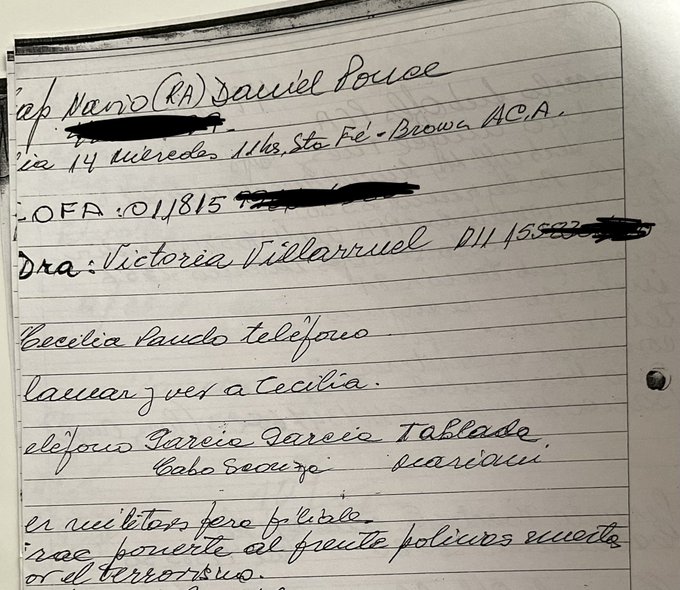 ap Navio (RA) Daniel Ponce
ia 14 Miercoles 11hs, Sta Fé - Brown A.C.A.
OFA: 011/815
Dra: Victoria Villarruel 011/15
Cecilia Pando teléfono
lamar y ver a Cecilia.
eléfono Garcia Garcia Tablada
Cabo Mariani
er militares para filiale
ponerte al frente policias muertos
or el terrorismo.